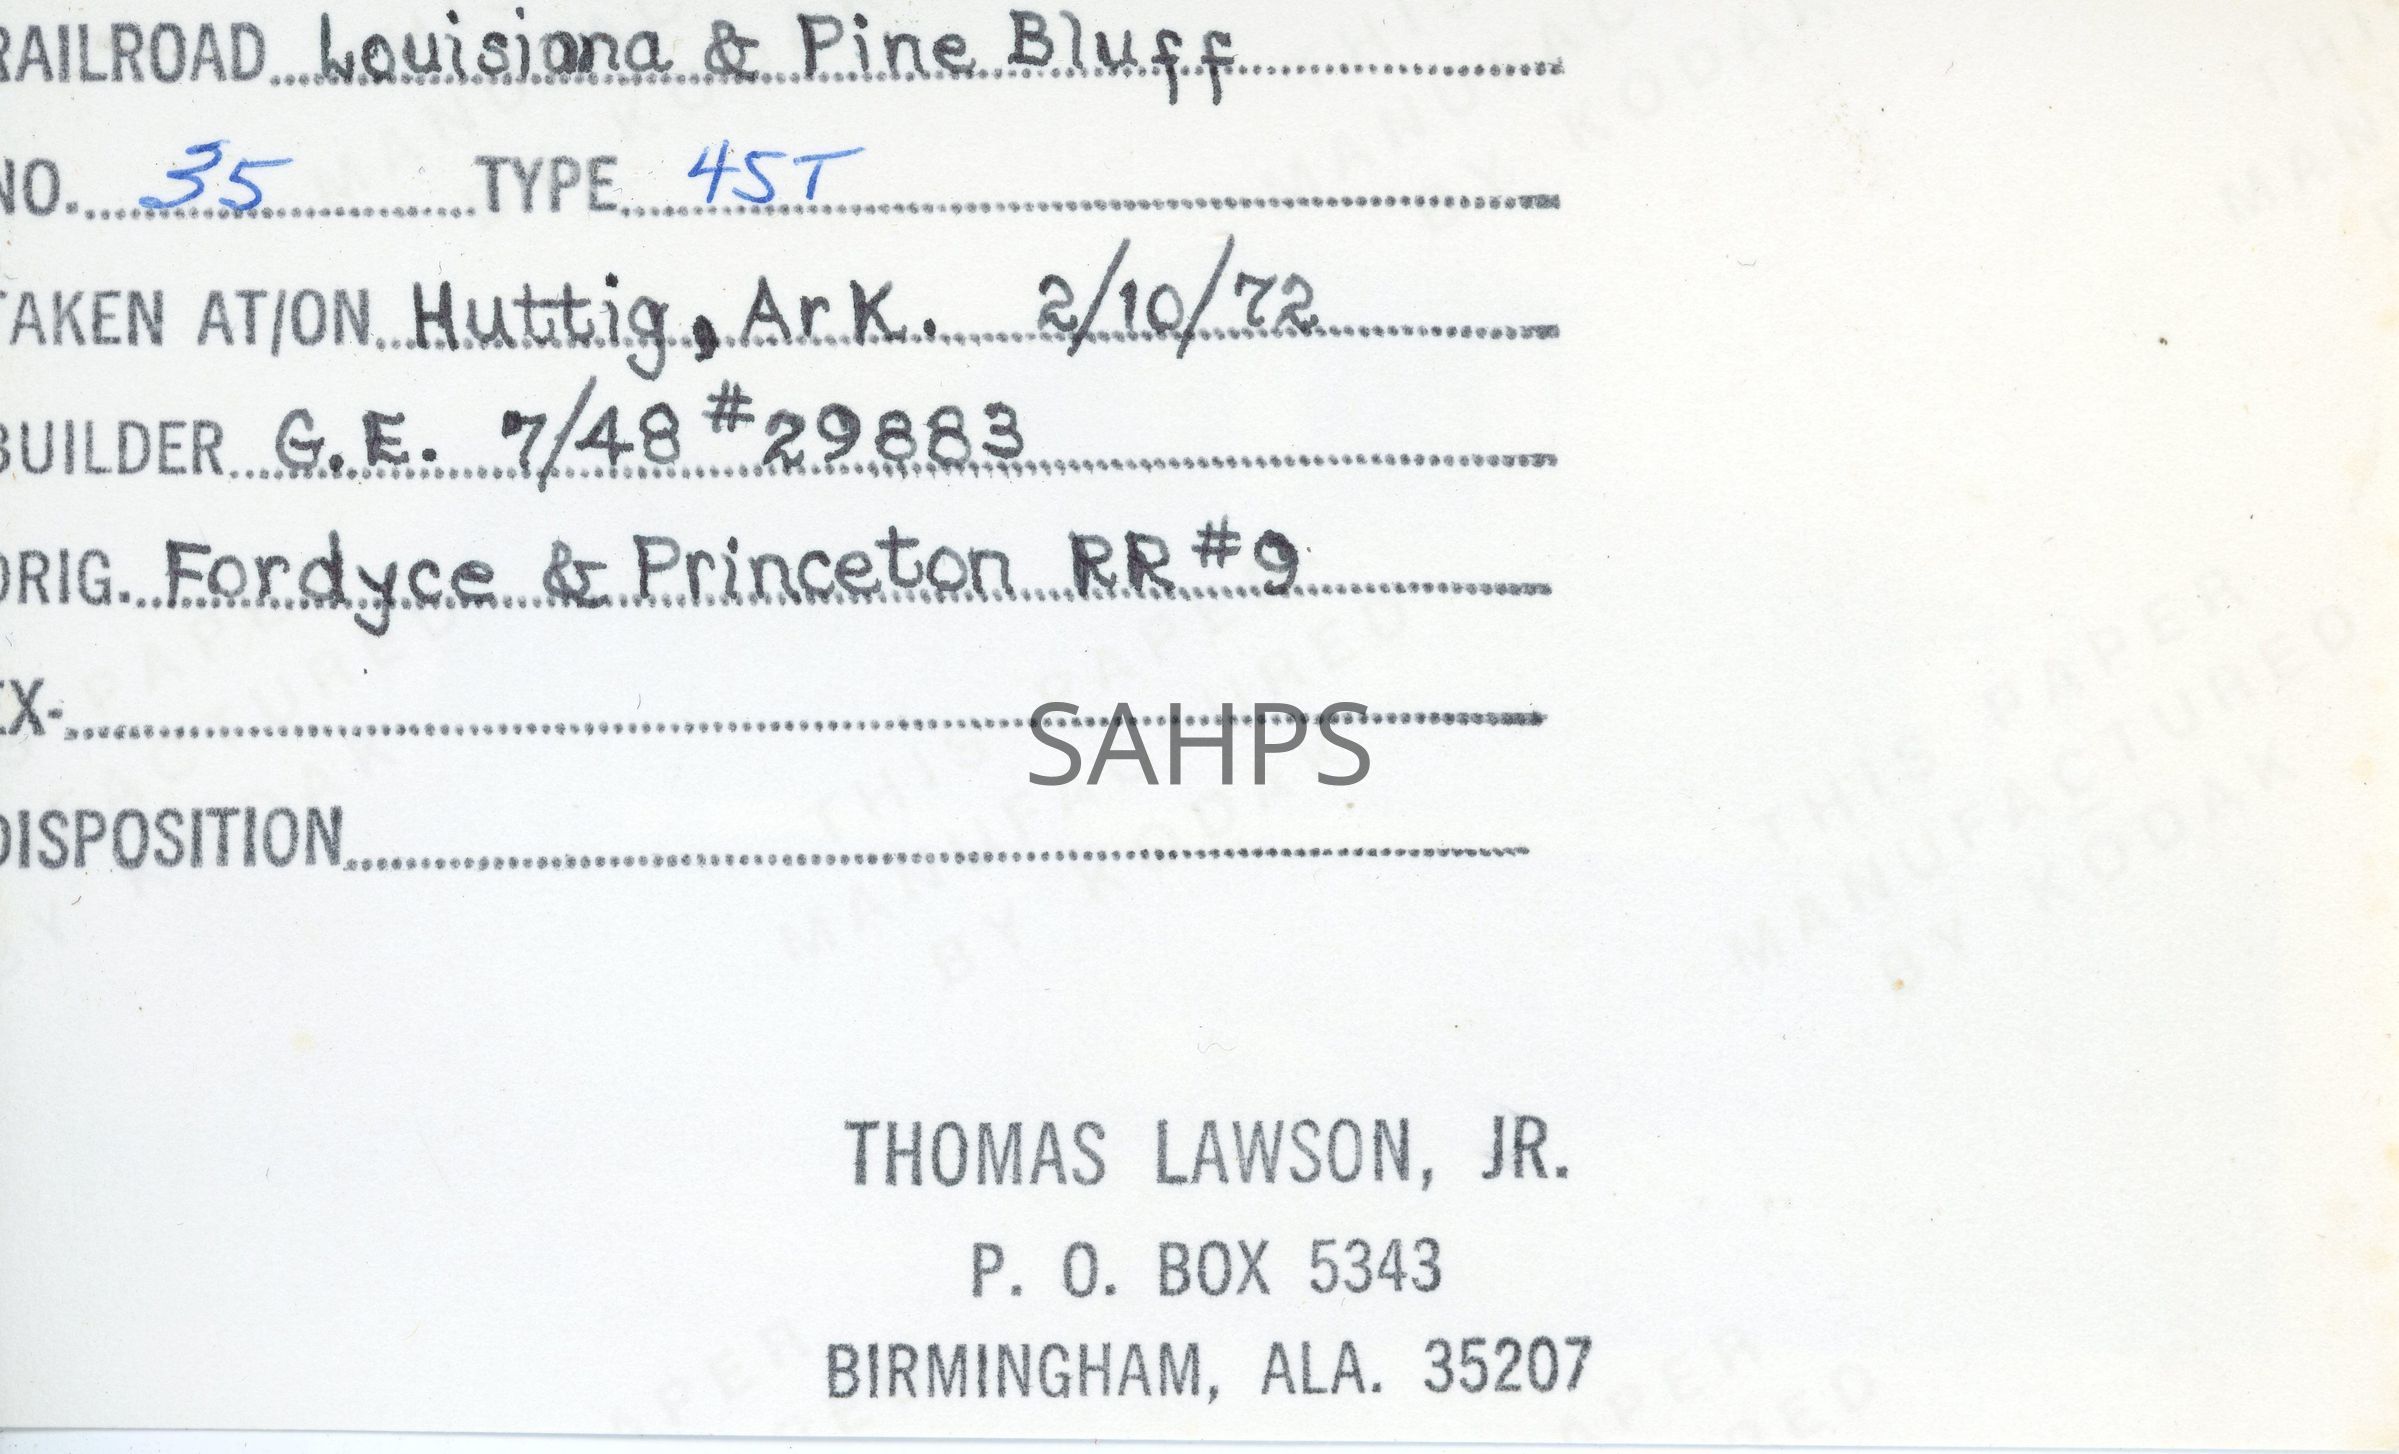 RAILROAD Louisiana & Pine Bluff
NO. 35 TYPE 45T
TAKEN AT/ON Huttig, Ark. 2/10/72
BUILDER G.E. 7/48 #29883
ORIG. Fordyce & Princeton RR #9
EX-
SAHPS
DISPOSITION
THIS PAPER
MANUFACTURED
BY KODAK
THOMAS LAWSON, JR.
P. O. BOX 5343
BIRMINGHAM, ALA. 35207